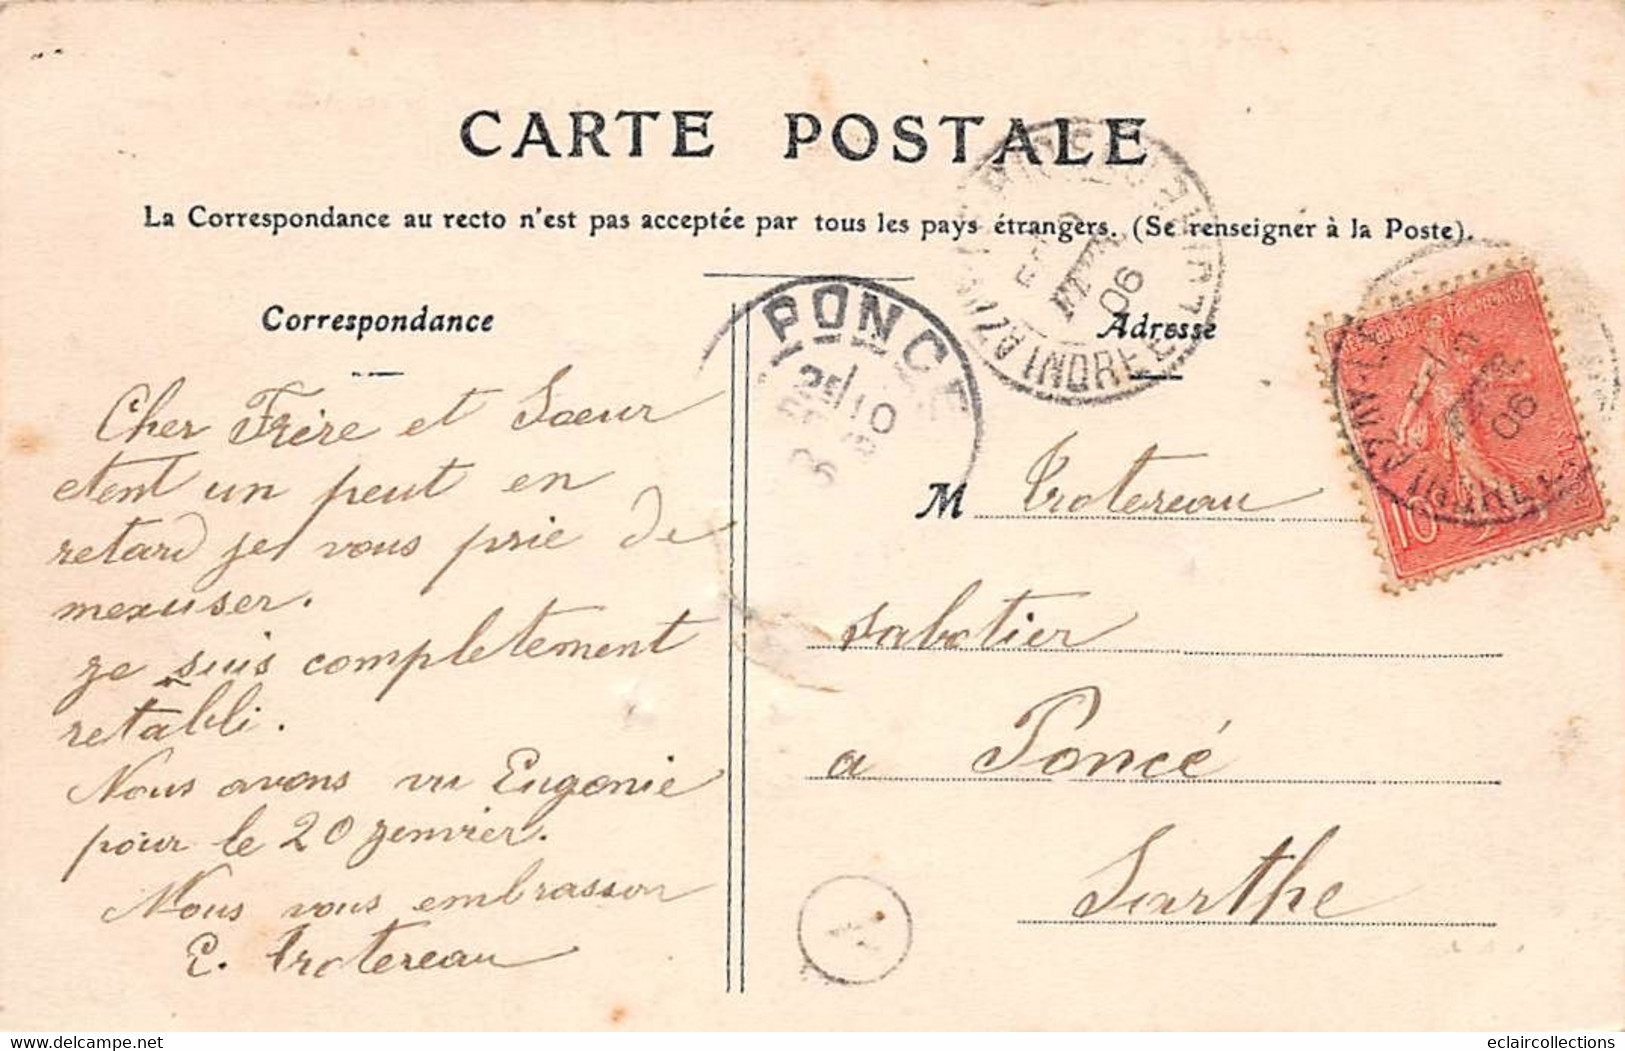 CARTE POSTALE
La Correspondance au recto n'est pas acceptée par tous les pays étrangers. (Se renseigner à la Poste).
Correspondance
Cher Frère et Sœur
etent un peut en
retard je vous prie de
mexuser.
je suis completement
retabli.
Nous avons vu Eugenie
pour le 20 jenvier.
Nous vous embrasson
E. Trotereau
PONCÉ
10
06
INDRE
Adresse
06
10
M Trotereau
sabotier
a Poncé
Sarthe
www.delcampe.net
eclaircollections